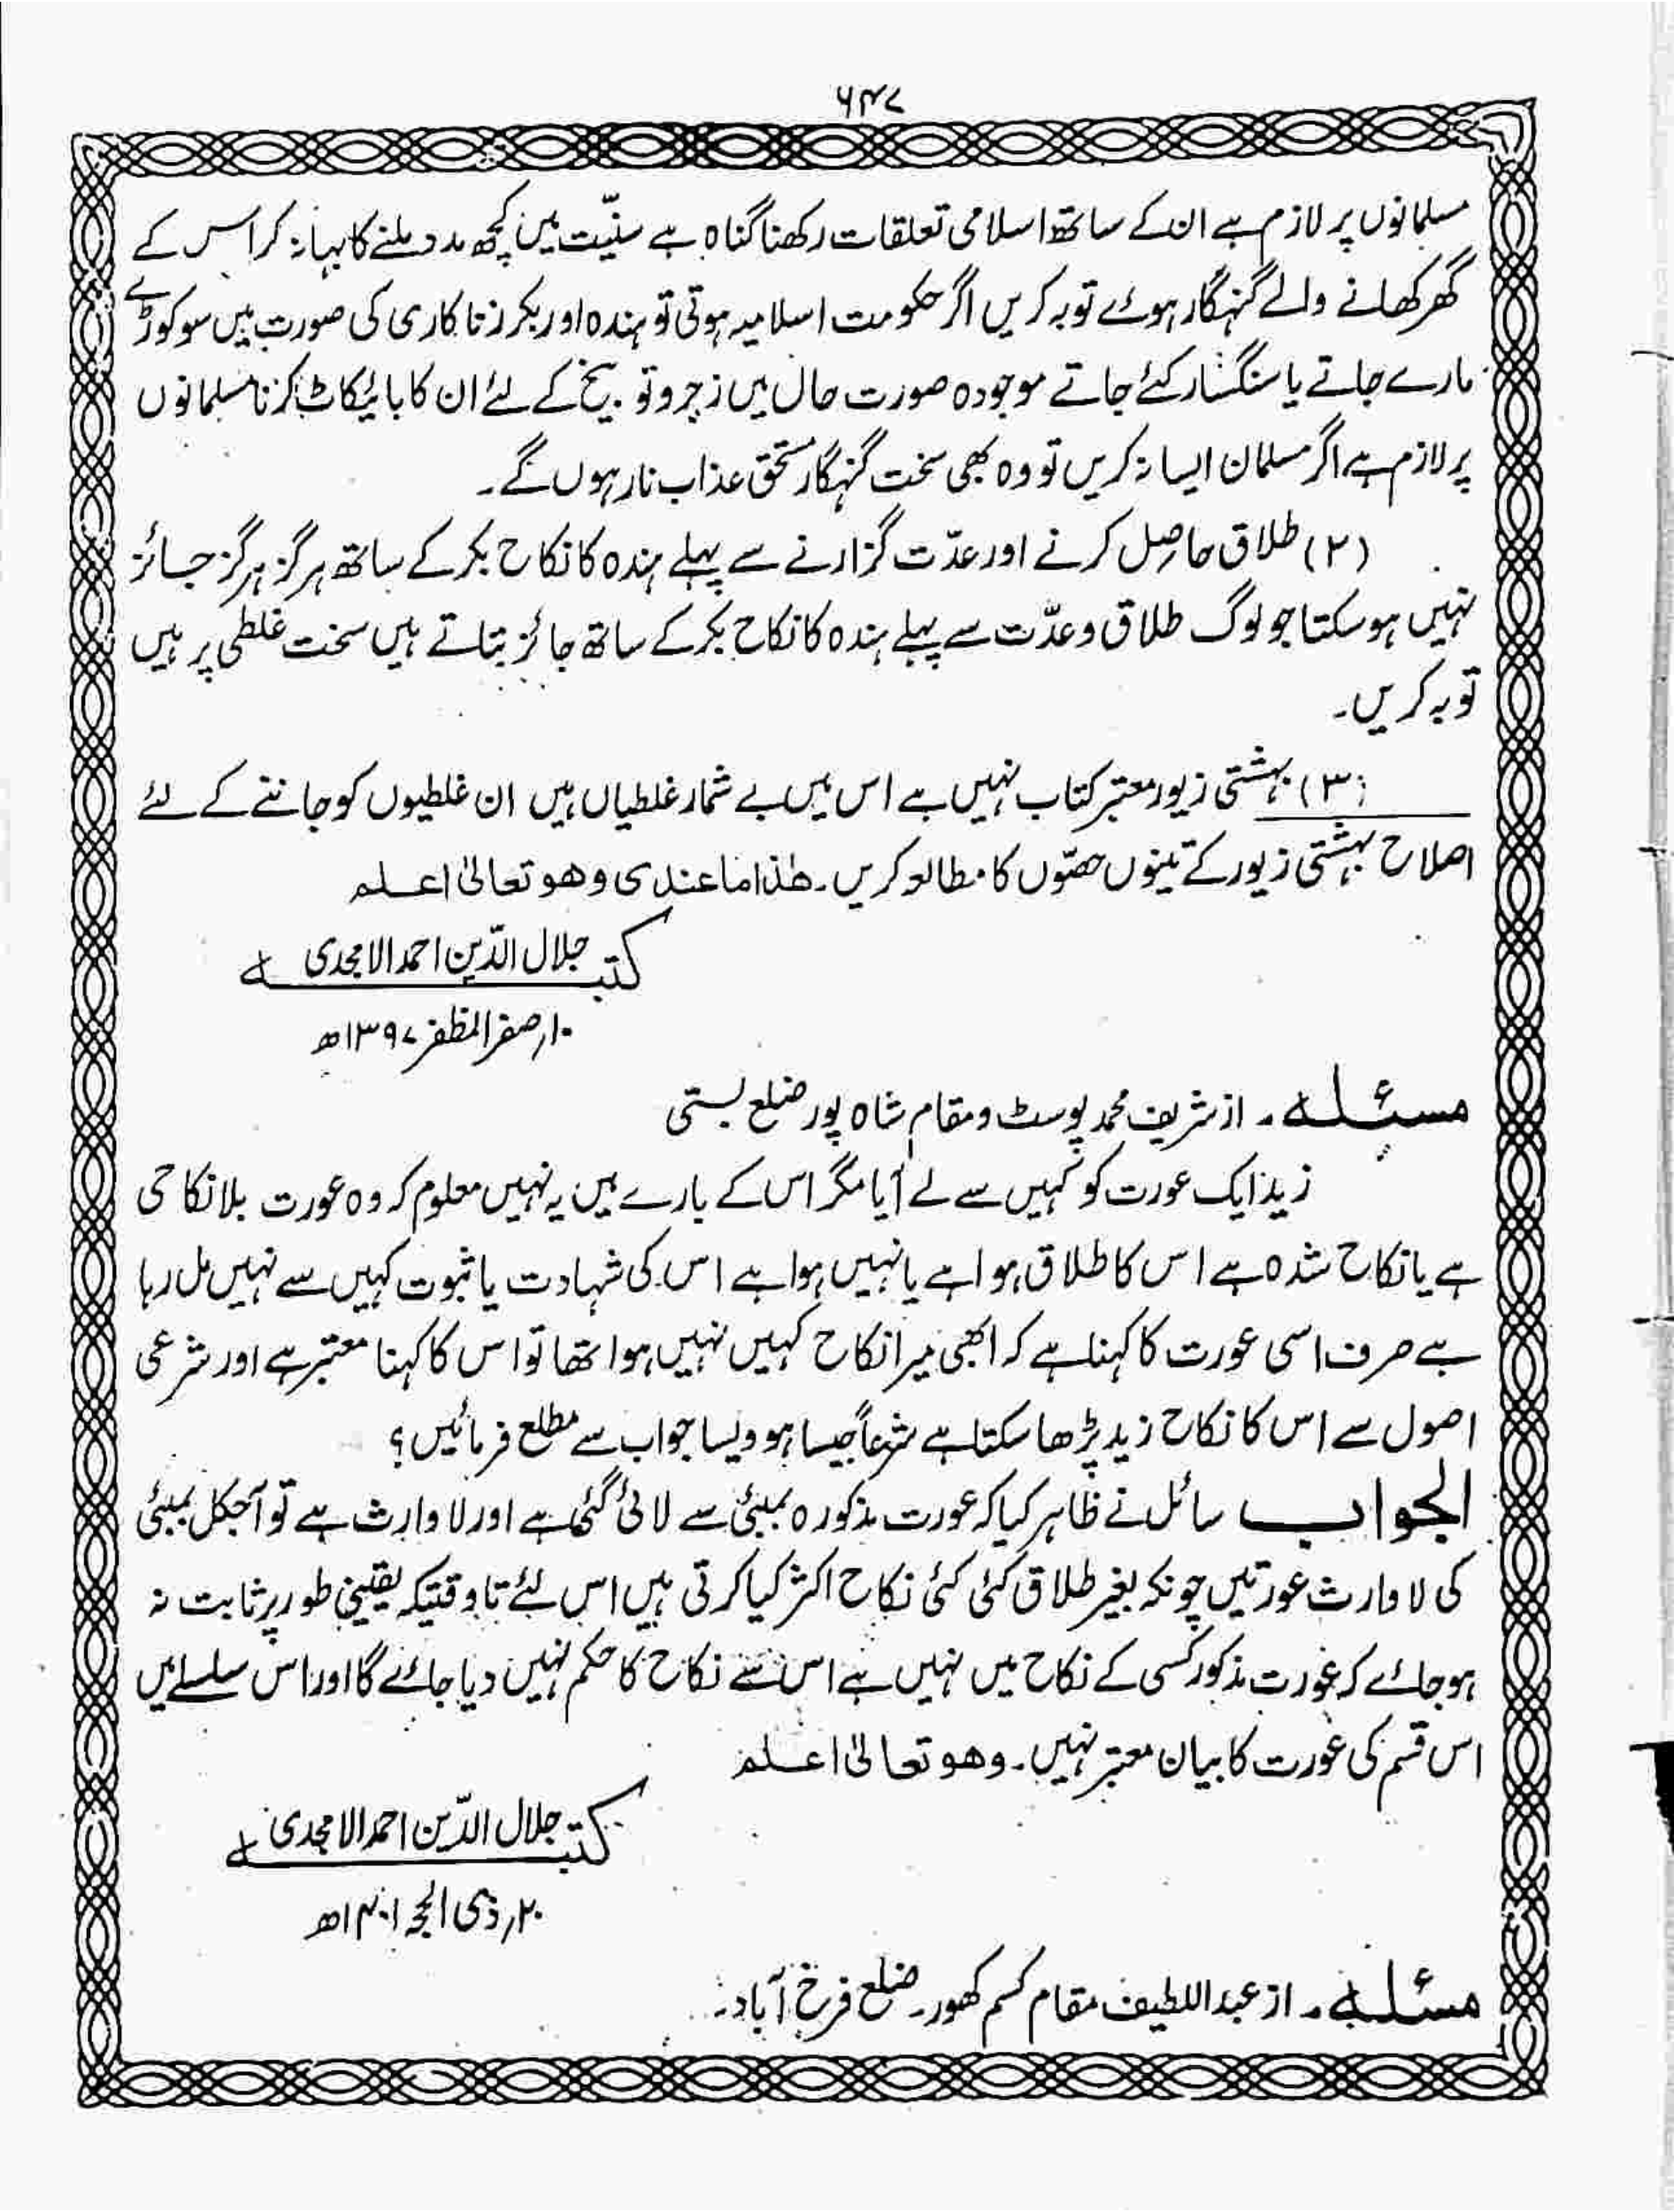 ۶۴۷
مسلمانوں پر لازم ہے ان کے ساتھ اسلامی تعلقات رکھنا گناہ ہے سنیّت میں کچھ مدد ملنے کا بہانہ کر اس کے
گھر کھانے والے گنہگار ہوئے توبہ کریں اگر حکومت اسلامیہ ہوتی تو ہندہ اور بکر زنا کاری کی صورت میں سو کوڑے
مارے جاتے یا سنگسار کئے جاتے موجودہ صورت حال میں زجر و توبیخ کے لئے ان کا بائیکاٹ کرنا مسلمانوں
پر لازم ہے اگر مسلمان ایسا نہ کریں تو وہ بھی سخت گنہگار مستحق عذاب نار ہوں گے۔
(۲) طلاق حاصل کرنے اور عدّت گزارنے سے پہلے ہندہ کا نکاح بکر کے ساتھ ہرگز ہرگز جائز
نہیں ہو سکتا جو لوگ طلاق و عدّت سے پہلے ہندہ کا نکاح بکر کے ساتھ جائز بتاتے ہیں سخت غلطی پر ہیں
توبہ کریں۔
(۳) بہشتی زیور معتبر کتاب نہیں ہے اس میں بے شمار غلطیاں ہیں ان غلطیوں کو جاننے کے لئے
اصلاح بہشتی زیور کے تینوں حصّوں کا مطالعہ کریں۔ ھٰذا ما عندی وھو تعالیٰ اعلم
کتبہ جلال الدّین احمد الامجدی
۱۰؍ صفر المظفر ۱۳۹۷ھ
مسئلہ۔ از شریف محمد پوسٹ و مقام شاہ پور ضلع بستی
زید ایک عورت کو کہیں سے لے آیا مگر اس کے بارے میں یہ نہیں معلوم کہ وہ عورت بلا نکاحی
ہے یا نکاح شدہ ہے اس کا طلاق ہوا ہے یا نہیں ہوا ہے اس کی شہادت یا ثبوت کہیں سے نہیں مل رہا
ہے صرف اسی عورت کا کہنا ہے کہ ابھی میرا نکاح کہیں نہیں ہوا تھا تو اس کا کہنا معتبر ہے اور شرعی
اصول سے اس کا نکاح زید پڑھا سکتا ہے شرعاً جیسا ہو ویسا جواب سے مطلع فرمائیں؟
الجواب سائل نے ظاہر کیا کہ عورت مذکورہ بمبئی سے لائی گئی ہے اور لاوارث ہے تو آجکل بمبئی
کی لاوارث عورتیں چونکہ بغیر طلاق کئی کئی نکاح اکثر کیا کرتی ہیں اس لئے تا وقتیکہ یقینی طور پر ثابت نہ
ہو جائے کہ عورت مذکور کسی کے نکاح میں نہیں ہے اس سے نکاح کا حکم نہیں دیا جائے گا اور اس سلسلے میں
اس قسم کی عورت کا بیان معتبر نہیں۔ وھو تعالیٰ اعلم
کتبہ جلال الدّین احمد الامجدی
۲۰؍ ذی الحجہ ۱۴۰۱ھ
مسئلہ۔ از عبد اللطیف مقام کسم کھور۔ ضلع فرخ آباد۔